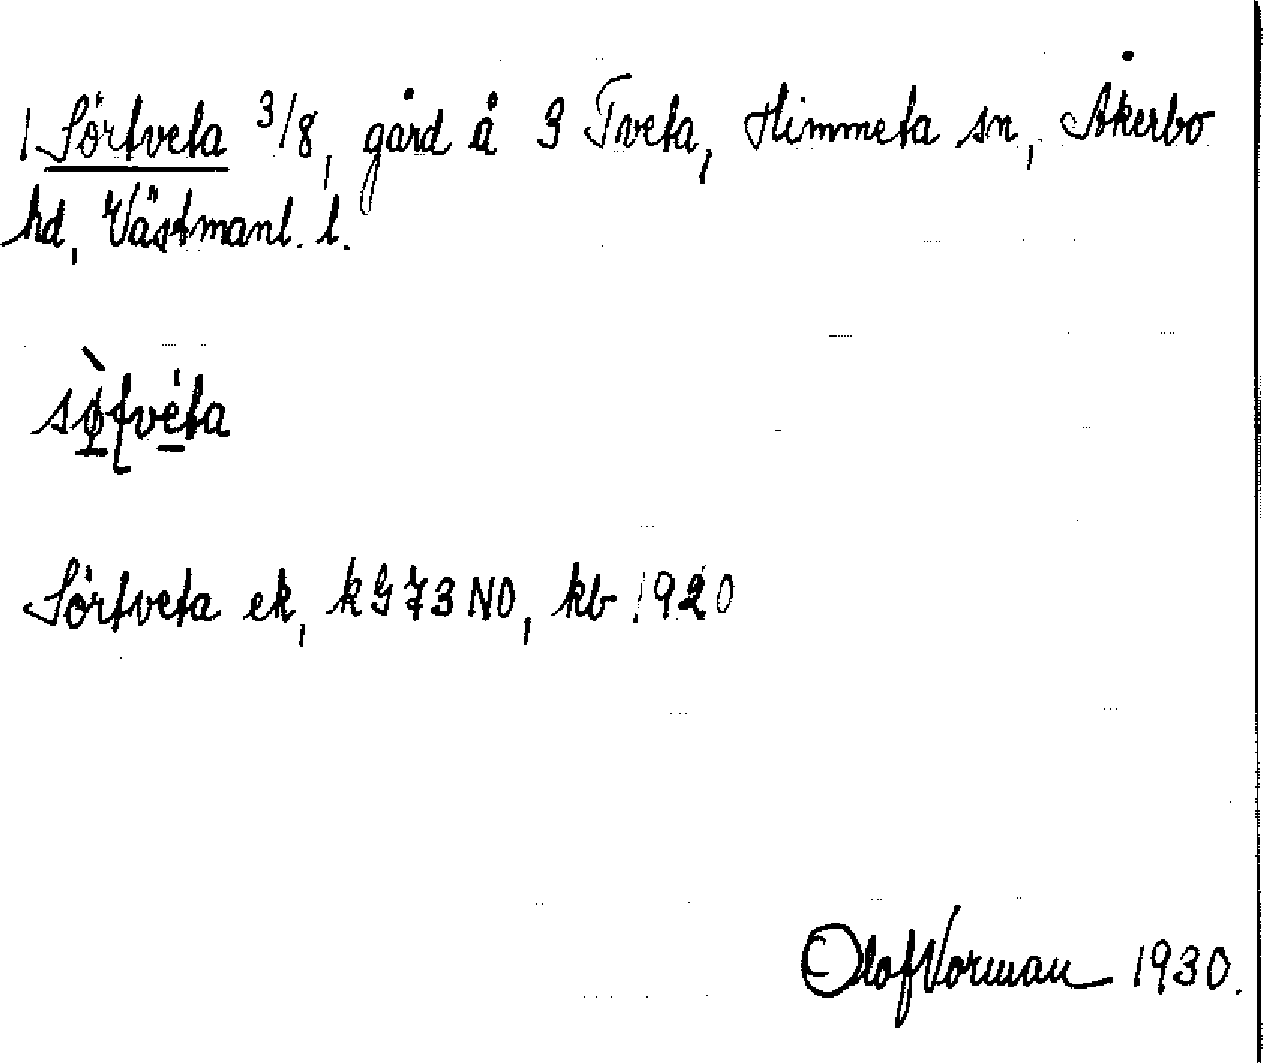 1 Sörtveta 3/8, gård å 3 Tveta, Himmeta sn, Åkerbo
hd, Västmanl. l.
sø̀ʈve̍ta
Sörtveta ek, kG73NO, kb 1920
Olof Vorman 1930.